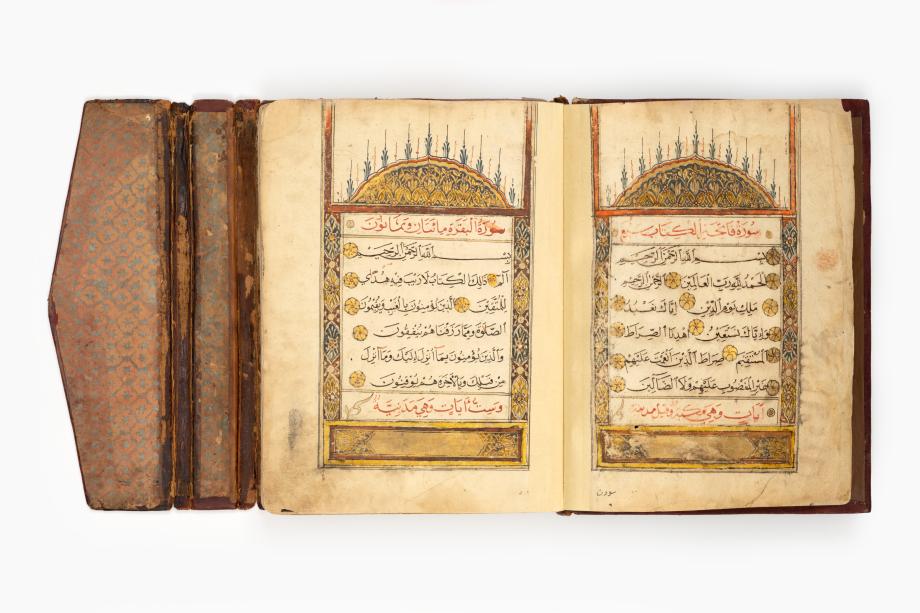 سورة فاتحة الكتاب سبع
بسم الله الرحمن الرحيم
الحمد لله رب العالمين الرحمن الرحيم
ملك يوم الدين اياك نعبد
واياك نستعين اهدنا الصراط
المستقيم صراط الذين انعمت عليهم
غير المغضوب عليهم ولا الضالين
آيات وهي وقيل مدنية
سورة البقرة مائتان وثمانون
بسم الله الرحمن الرحيم
الم ذالك الكتاب لا ريب فيه هدى
للمتقين الذين يؤمنون بالغيب ويقيمون
الصلوة ومما رزقناهم ينفقون
والذين يؤمنون بما انزل اليك وما انزل
من قبلك وبالآخرة هم يوقنون
وست آيات وهي مدنية